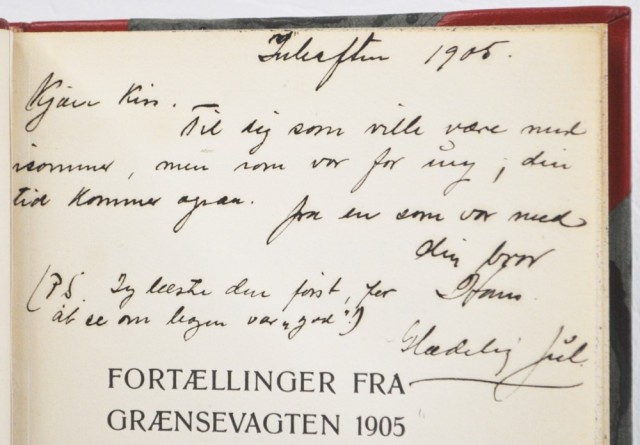 Juleaften 1905.
Kjære Kiss.
Til dig som ville være med
isommer, men som var for ung; din
tid kommer ogsaa. fra en som var med
din bror
(P.S. Jeg læste den først, for Hans.
at se om bogen var "god"!)
Glædelig Jul.
FORTÆLLINGER FRA
GRÆNSEVAGTEN 1905